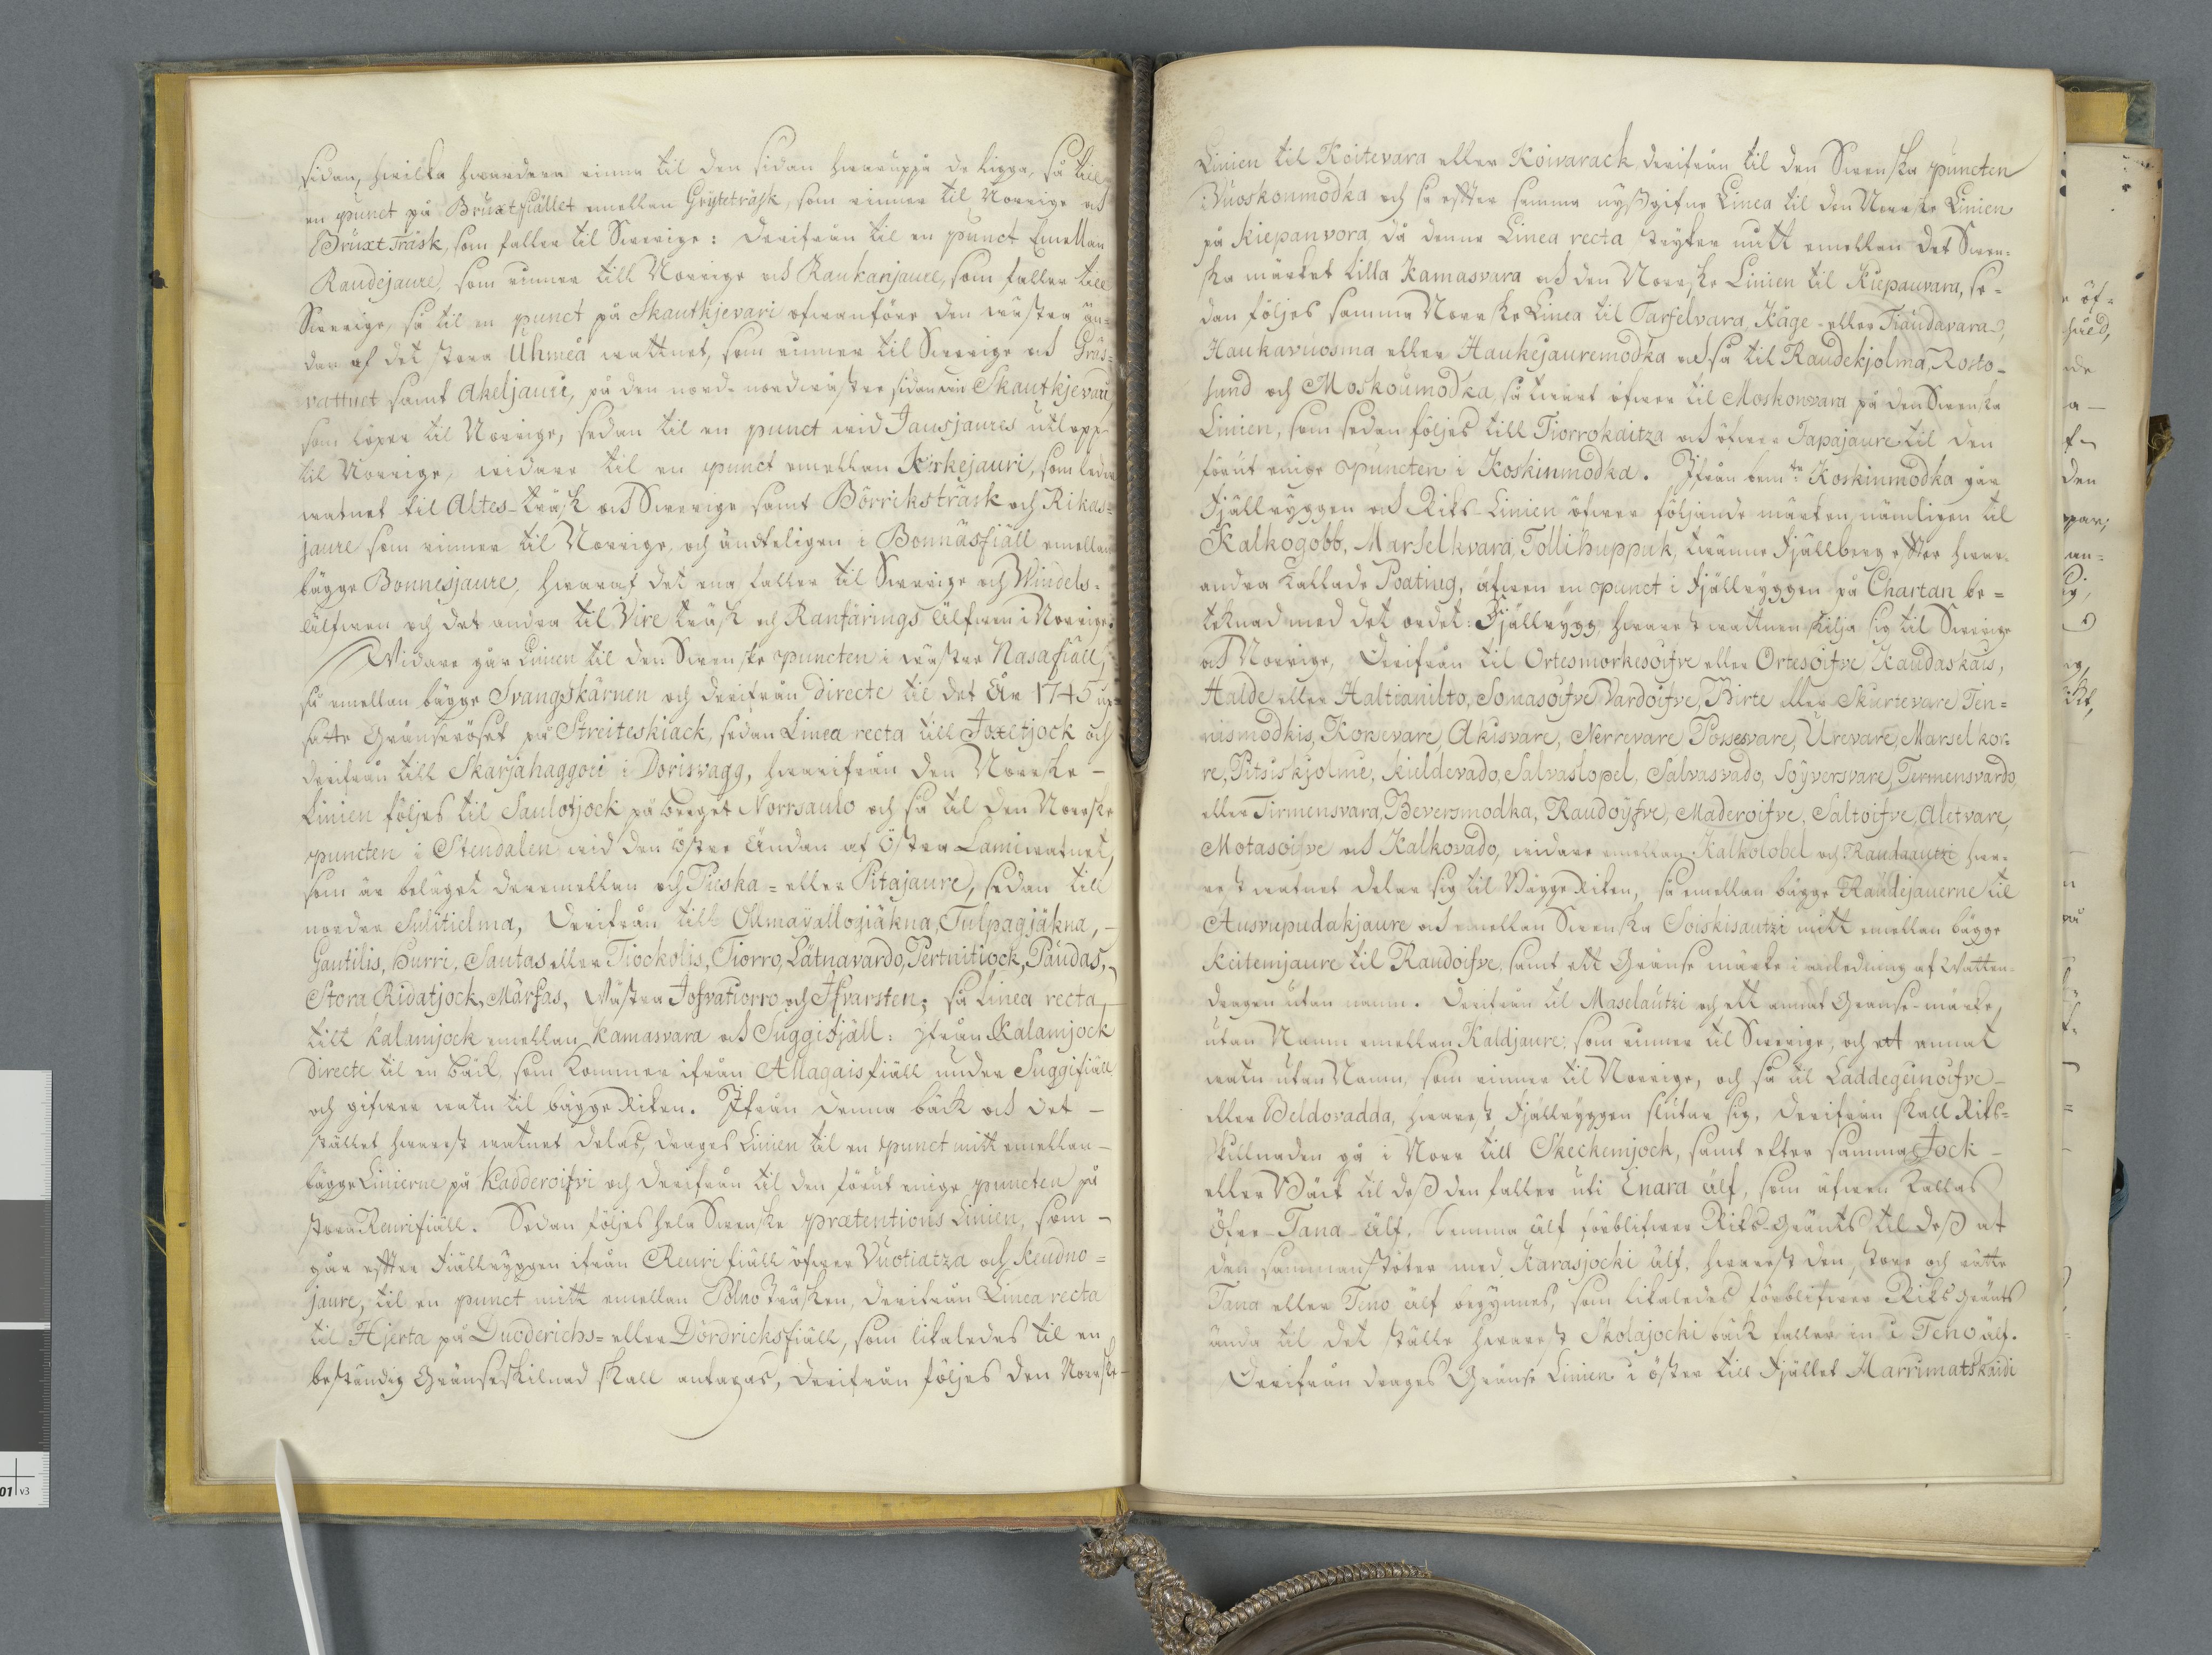 sidan, hwilka hwardera rinna til den sidan hwaruppå de ligga, så till
en punct på Bruxtfiället emellan Gryteträsk, som rinner til Norrige och
Bruxt Träsk, som faller til Swerige: derifrån til en punct Emellan
Raudejaure, som rinner till Norrige och Raukarijaure, som faller till
Swerige, så til en punct på Skautkjevari ofwanföre den wästra än-
dan af det stora Uhmeå wattnet, som rinner til Swerige och Gräs-
vattnet samt Akeljauri, på den nord-nordwästre sidan om Skautkjevari,
som löper til Norrige, sedan til en punct wid Jausjaures utlopp
til Norrige, widare til en punct emellan Kirkejauri, som leder
watnet til Altes-träsk och Swerige samt Börriksträsk och Rikas-
jaure som rinner til Norrige, och ändteligen i Bonnäsfiäll emellan
bägge Bonnesjaure, hwaraf det ena faller til Swerige och Windels-
älfwen och det andra til Vire träsk och Ranfärings älfwen i Norrige.
Widare går Linien til den Swenske puncten i wästra Nasafiäll,
så emellan bägge Svangskärnen och derifrån directe til det År 1745 up-
satte Gränseröset på Streiteskiack, sedan Linea recta till Joxetjock och
derifrån till Skarjahaggoei i Dorisvagg, hwarifrån den Norrske -
Linien följes til Saulotjock på berget Norrsaulo och så til den Norrske
puncten i Stendalen wid den östre ändan af östra Lamiwatnet,
som är beläget deremellan och Pieska= eller Pitajaure, sedan till
norder Sulitielma, derifrån till Ollmavallogjäkna, Tulpagjäkna, -
Gautilis, Hurri, Sautas eller Tiockolis, Tiorro, Lätnavardo, Pertnitiock, Paudas,
Stora Ridatjock, Märfas, Wästra Jofvatiorro och Ifvarsten; så Linea recta,
till Kalamjock emellan Kamasvara och Suggifjäll: Ifrån Kalamjock
Directe til en bäck, som kommer ifrån Allagaisfiäll under Suggifiäll
och gifwer watn til bägge Riken. Ifrån denna bäck och det -
stället hwarest watnet delas, drages Linien til en punct mitt emellan -
bägge Linierne på Kadderoifvi och derifrån til den förut enige puncten på
stora Reurifiäll. Sedan följes hela Swenske prætentions Linien, som -
går efter Fiällryggen ifrån Reurifiäll öfwer Vuotiatza och Keudno=
jaure, til en punct mitt emellan Polno Träsken, derifrån Linea recta
til Hjerta på Duoderichs= eller Dördricksfiäll, som likaledes til en
beständig Gränseskilnad skall antagas, derifrån följes den Norrske -
Linien til Koitevara eller Koivarack, derifrån til den Swenska puncten
Vuoskonmodka och så efter samma nyssgifne Linea til den Norrske Linien
på Kiepanvora, då denne Linea recta stryker mitt emellan det Swen=
ska märket lilla Kamasvara och den Norrske Linien til Kiepauvara, se-
dan följes samma Norrske Linea til Tarfelvara, Käge- eller Tiaudavara,
Haukavuosma eller Haukejauremodka och så til Raudekjolma, Rosto-
sund och Moskoumodka, så twert öfwer til Moskowara på den Swenska
Linien, som sedan följes till Tiorrokaitza och öfwer Tapajaure til den
förut enige puncten i Koskinmodka. Ifrån bem:te Koskinmodka går
Fjällryggen och Riks-Linien öfwer följande märken, nämligen til
Kalkogobb, Marselkvara, Tollihuppuk, twänne Fjällberg efter hwar-
andra kallade Poating, äfwen en punct i Fjällryggen på Chartan be=
teknad med det ordet: Fjällrygg, hwarest wattnen skilja sig til Swerige
och Norrige, derifrån til Ortesmorkesoifve eller Ortesoifve, Kaudaskais,
Halde eller Haltianicto, Somasoifve, Vardoifve, Birte eller Skurtevare, Ten=
nismodkis, Korsevare, Akisvare, Nerrevare, Posseswvare, Urevare, Marselkor-
re, Pitsiskjolme, Kieldevado, Salvaslopel, Salvasvado, Soyversvare, Termensvardo,
eller Tirmensvara, Beversmodka, Raudoyfve, Maderoifve, Saltoifve, Aletvare,
Motasoifve och Kalkovado, widare emellan Kalkolobel och Raudaautzi hwa-
rest watnet delar sig til Bägge Riken, så emellan bägge Raudejauerne til
Ausvupudakjaure och emellan Swenska Soiskisautzi mitt emellan bägge
Keitemjaure til Raudoifve, samt ett Gränse märke i anledning af Watten-
dragen utan namn. derifrån til Maselautzi och ett annat Gränse-märke,
utan Namn emellan Kaldjaure, som rinner til Swerige, och ett annat
watn utan Namn, som rinner til Norrige, och så til Laddegeinoifve -
eller Beldovadda, hwarest Fjällryggen slutar sig. derifrån skall Riks-
skillnaden gå i Norr till Skeckemjock, samt efter samma Jock -
eller Bäck til dess den faller uti Enara älf, som äfwen kallas
Öfre-Tana-älf. Denna älf förblifwer Riks-Gränts til dess at
den sammanstöter med Karasjocki älf, hwarest den store och rätte
Tana eller Teno älf begynnes, som likaledes förblifwer Riks gränts
ända til det ställe hwarest Skolajocki bäck faller in i Teno älf.
Derifrån drages Gränse Linien i öster till Fjället Harrimatskaidi